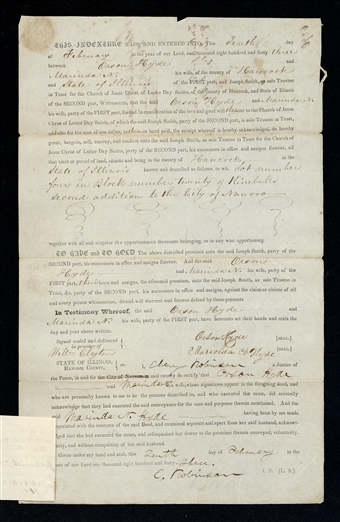 THIS INDENTURE MADE AND ENTERED INTO This Tenth day
of February in the year of our Lord, one thousand eight hundred and forty three
between Orson Hyde and
Marinda N. his wife, of the county of Hancock
and State of Illinois of the FIRST part, and Joseph Smith, as sole Trustee
in Trust for the Church of Jesus Christ of Latter Day Saints, of County of Hancock, and State of Illinois
of the SECOND part, Witnesseth, that the said Orson Hyde and Marinda N.
his wife, party of the FIRST part,
Day Saints, of which the said Joseph Smith, party of the SECOND part, is sole Trustee in Trust,
and also for the sum of one dollar, to them in hand paid, the receipt whereof is hereby acknowledged, do hereby
grant, bargain, sell, convey, and confirm unto the said Joseph Smith, as sole Trustee in Trust for the
Church of Jesus Christ of Latter Day Saints, party of the SECOND part, his successors in office and assigns forever, all
that tract or parcel of land, situate and being in the county of Hancock in the
State of Illinois known and described as follows, to wit. Lot number
four in Block number twenty of Kimballs
Second addition to the City of Nauvoo
together with all and singular the appurtenances thereunto belonging, or in any wise appertaining.
TO HAVE and TO HOLD The above described premises unto the said Joseph Smith, party of the
SECOND part, his successors in office and assigns forever. And the said Orson
Hyde and Marinda N. his wife, party of the
FIRST part, their heirs and assigns, the aforesaid premises, unto the said Joseph Smith, as sole Trustee in
Trust, &c. party of the SECOND part, his successors in office, and assigns, against the claim or claims of all
and every person whomsoever, do and will warrant and forever defend by these presents
In Testimony Whereof, the said Orson Hyde and
Marinda N. his wife, party of the FIRST part, have hereunto set their hands and seals the
day and year above written.
Signed sealed and delivered
in presence of
Orson Hyde [SEAL.]
Wm Clayton
Marinda N Hyde [SEAL.]
STATE OF ILLINOIS,
Hancock County,
I, Ebenezer Robinson a Justice of
the Peace, in and for do certify that Orson Hyde
and Marinda N. his wife, whose signatures appear to the foregoing deed, and
who are personally known to me to be the persons described in, and who executed the same, did severally
acknowledge that they had executed the said conveyance for the uses and purposes therein mentioned. And the
said Marinda N. Hyde having been by me made
acquainted with the contents of the said Deed, and examined separate and apart from her said husband, acknowl-
edged that she had executed the same, and relinquished her dower to the premises therein conveyed, voluntarily,
freely, and without compulsion of her said husband.
Given under my hand and seal, this Tenth day of February in the
year of our Lord one thousand eight hundred and forty three.
E. Robinson J. P. [L. S.]